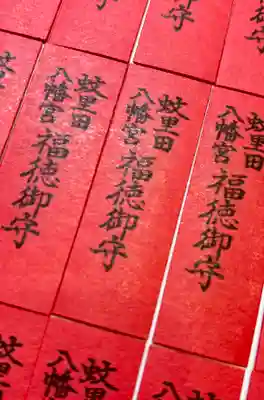 蚊里田
八幡宮
福徳御守
蚊里田
八幡宮
福徳御守
蚊里田
八幡宮
福徳御守
蚊里田
八幡